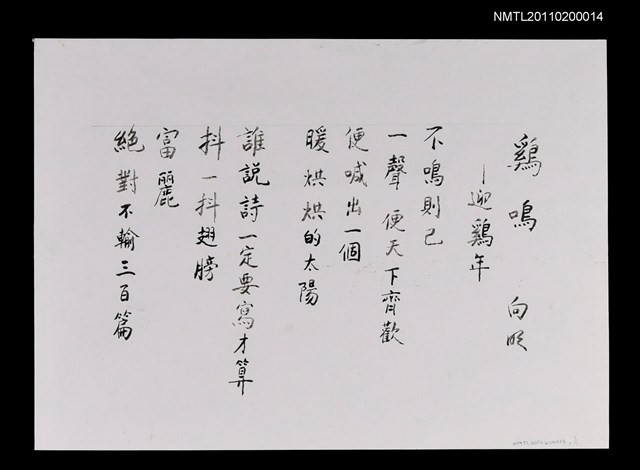 NMTL20110200014
鷄鳴 向明
—迎鷄年
不鳴則已
一聲便天下齊歡
便喊出一個
暖烘烘的太陽
誰說詩一定要寫才算
抖一抖翅膀
富麗
絕對不輸三百篇